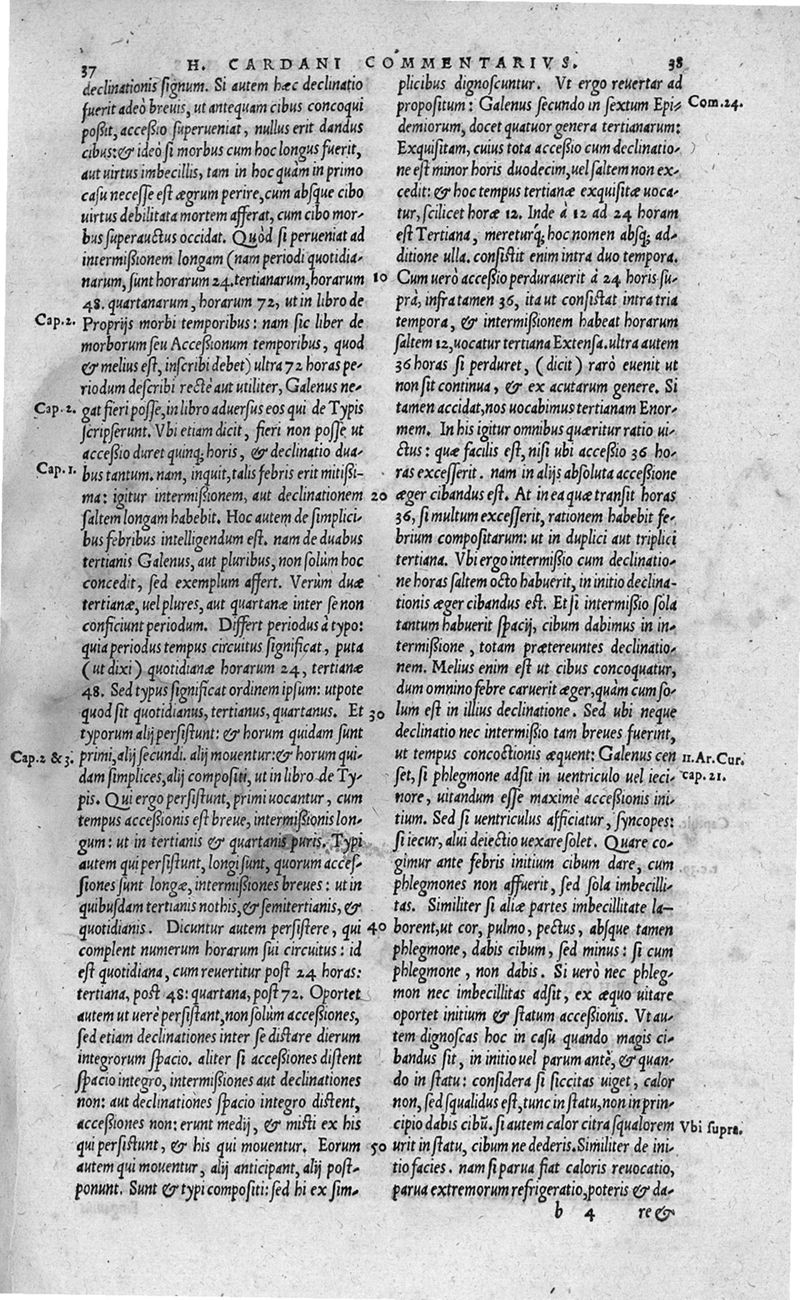 37 H. CARDANI COMMENTARIVS. 38
declinationis signum. Si autem hæc declinatio
fuerit adeò breuis, ut antequam cibus concoqui
poßit, acceßio superueniat, nullus erit dandus
cibus: & ideò si morbus cum hoc longus fuerit,
aut uirtus imbecillis, tam in hoc quàm in primo
casu necesse est ægrum perire, cum absque cibo
uirtus debilitata mortem afferat, cum cibo mor-
bus superauctus occidat. Quòd si perueniat ad
intermißionem longam (nam periodi quotidia-
narum, sunt horarum 24. tertianarum, horarum
48. quartanarum, horarum 72, ut in libro de
Cap.2. Proprijs morbi temporibus: nam sic liber de
morborum seu Acceßionum temporibus, quod
& melius est, inscribi debet) ultra 72 horas pe-
riodum describi rectè aut utiliter, Galenus ne-
Cap.2. gat fieri posse, in libro aduersus eos qui de Typis
scripserunt. Vbi etiam dicit, fieri non posse ut
acceßio duret quinq; horis, & declinatio dua-
Cap.1. bus tantum. nam, inquit, talis febris erit mitißi-
ma: igitur intermißionem, aut declinationem
saltem longam habebit. Hoc autem de simplici-
bus febribus intelligendum est. nam de duabus
tertianis Galenus, aut pluribus, non solùm hoc
concedit, sed exemplum affert. Verùm duæ
tertianæ, uel plures, aut quartanæ inter se non
conficiunt periodum. Differt periodus à typo:
quia periodus tempus circuitus significat, puta
(ut dixi) quotidianæ horarum 24, tertianæ
48. Sed typus significat ordinem ipsum: utpote
quod sit quotidianus, tertianus, quartanus. Et
typorum alij persistunt: & horum quidam sunt
Cap.2 & 3. primi, alij secundi. alij mouentur: & horum qui-
dam simplices, alij compositi, ut in libro de Ty-
pis. Qui ergo persistunt, primi uocantur, cum
tempus acceßionis est breue, intermißionis lon-
gum: ut in tertianis & quartanis puris. Typi
autem qui persistunt, longi sunt, quorum acces-
siones sunt longæ, intermißiones breues: ut in
quibusdam tertianis nothis, & semitertianis, &
quotidianis. Dicuntur autem persistere, qui
complent numerum horarum sui circuitus: id
est quotidiana, cum reuertitur post 24 horas:
tertiana, post 48: quartana, post 72. Oportet
autem ut uerè persistant, non solùm acceßiones,
sed etiam declinationes inter se distare dierum
integrorum spacio. aliter si acceßiones distent
spacio integro, intermißiones aut declinationes
non: aut declinationes spacio integro distent,
acceßiones non: erunt medij, & misti ex his
qui persistunt, & his qui mouentur. Eorum
autem qui mouentur, alij anticipant, alij post-
ponunt. Sunt & typi compositi: sed hi ex sim-
10
20
30
40
50
plicibus dignoscuntur. Vt ergo reuertar ad
propositum: Galenus secundo in sextum Epi- Com.24.
demiorum, docet quatuor genera tertianarum:
Exquisitam, cuius tota acceßio cum declinatio-
ne est minor horis duodecim, uel saltem non ex-
cedit: & hoc tempus tertianæ exquisitæ uoca-
tur, scilicet horæ 12. Inde à 12 ad 24 horam
est Tertiana, mereturq; hoc nomen absq; ad-
ditione ulla. consistit enim intra duo tempora.
Cum uerò acceßio perdurauerit à 24 horis su-
prà, infra tamen 36, ita ut consistat intra tria
tempora, & intermißionem habeat horarum
saltem 12, uocatur tertiana Extensa. ultra autem
36 horas si perduret, (dicit) rarò euenit ut
non sit continua, & ex acutarum genere. Si
tamen accidat, nos uocabimus tertianam Enor-
mem. In his igitur omnibus quæritur ratio ui-
ctus: quæ facilis est, nisi ubi acceßio 36 ho-
ras excesserit. nam in alijs absoluta acceßione
æger cibandus est. At in ea quæ transit horas
36, si multum excesserit, rationem habebit fe-
brium compositarum: ut in duplici aut triplici
tertiana. Vbi ergo intermißio cum declinatio-
ne horas saltem octo habuerit, in initio declina-
tionis æger cibandus est. Et si intermißio sola
tantum habuerit spacij, cibum dabimus in in-
termißione, totam prætereuntes declinatio-
nem. Melius enim est ut cibus concoquatur,
dum omnino febre caruerit æger, quàm cum so-
lum est in illius declinatione. Sed ubi neque
declinatio nec intermißio tam breues fuerint,
ut tempus concoctionis æquent: Galenus cen 11.Ar.Cur.
set, si phlegmone adsit in uentriculo uel ieci- cap.21.
nore, uitandum esse maximè acceßionis ini-
tium. Sed si uentriculus afficiatur, syncopes:
si iecur, alui deiectio uexare solet. Quare co-
gimur ante febris initium cibum dare, cum
phlegmones non affuerit, sed sola imbecilli-
tas. Similiter si aliæ partes imbecillitate la-
borent, ut cor, pulmo, pectus, absque tamen
phlegmone, dabis cibum, sed minus: si cum
phlegmone, non dabis. Si uerò nec phleg-
mon nec imbecillitas adsit, ex æquo uitare
oportet initium & statum acceßionis. Vt au-
tem dignoscas hoc in casu quando magis ci-
bandus sit, in initio uel parum antè, & quan-
do in statu: considera si siccitas uiget, calor
non, sed squalidus est, tunc in statu, non in prin-
cipio dabis cibū. si autem calor citra squalorem Vbi supra.
urit in statu, cibum ne dederis. Similiter de ini-
tio facies. nam si parua fiat caloris reuocatio,
parua extremorum refrigeratio, poteris & da-
b 4 re &